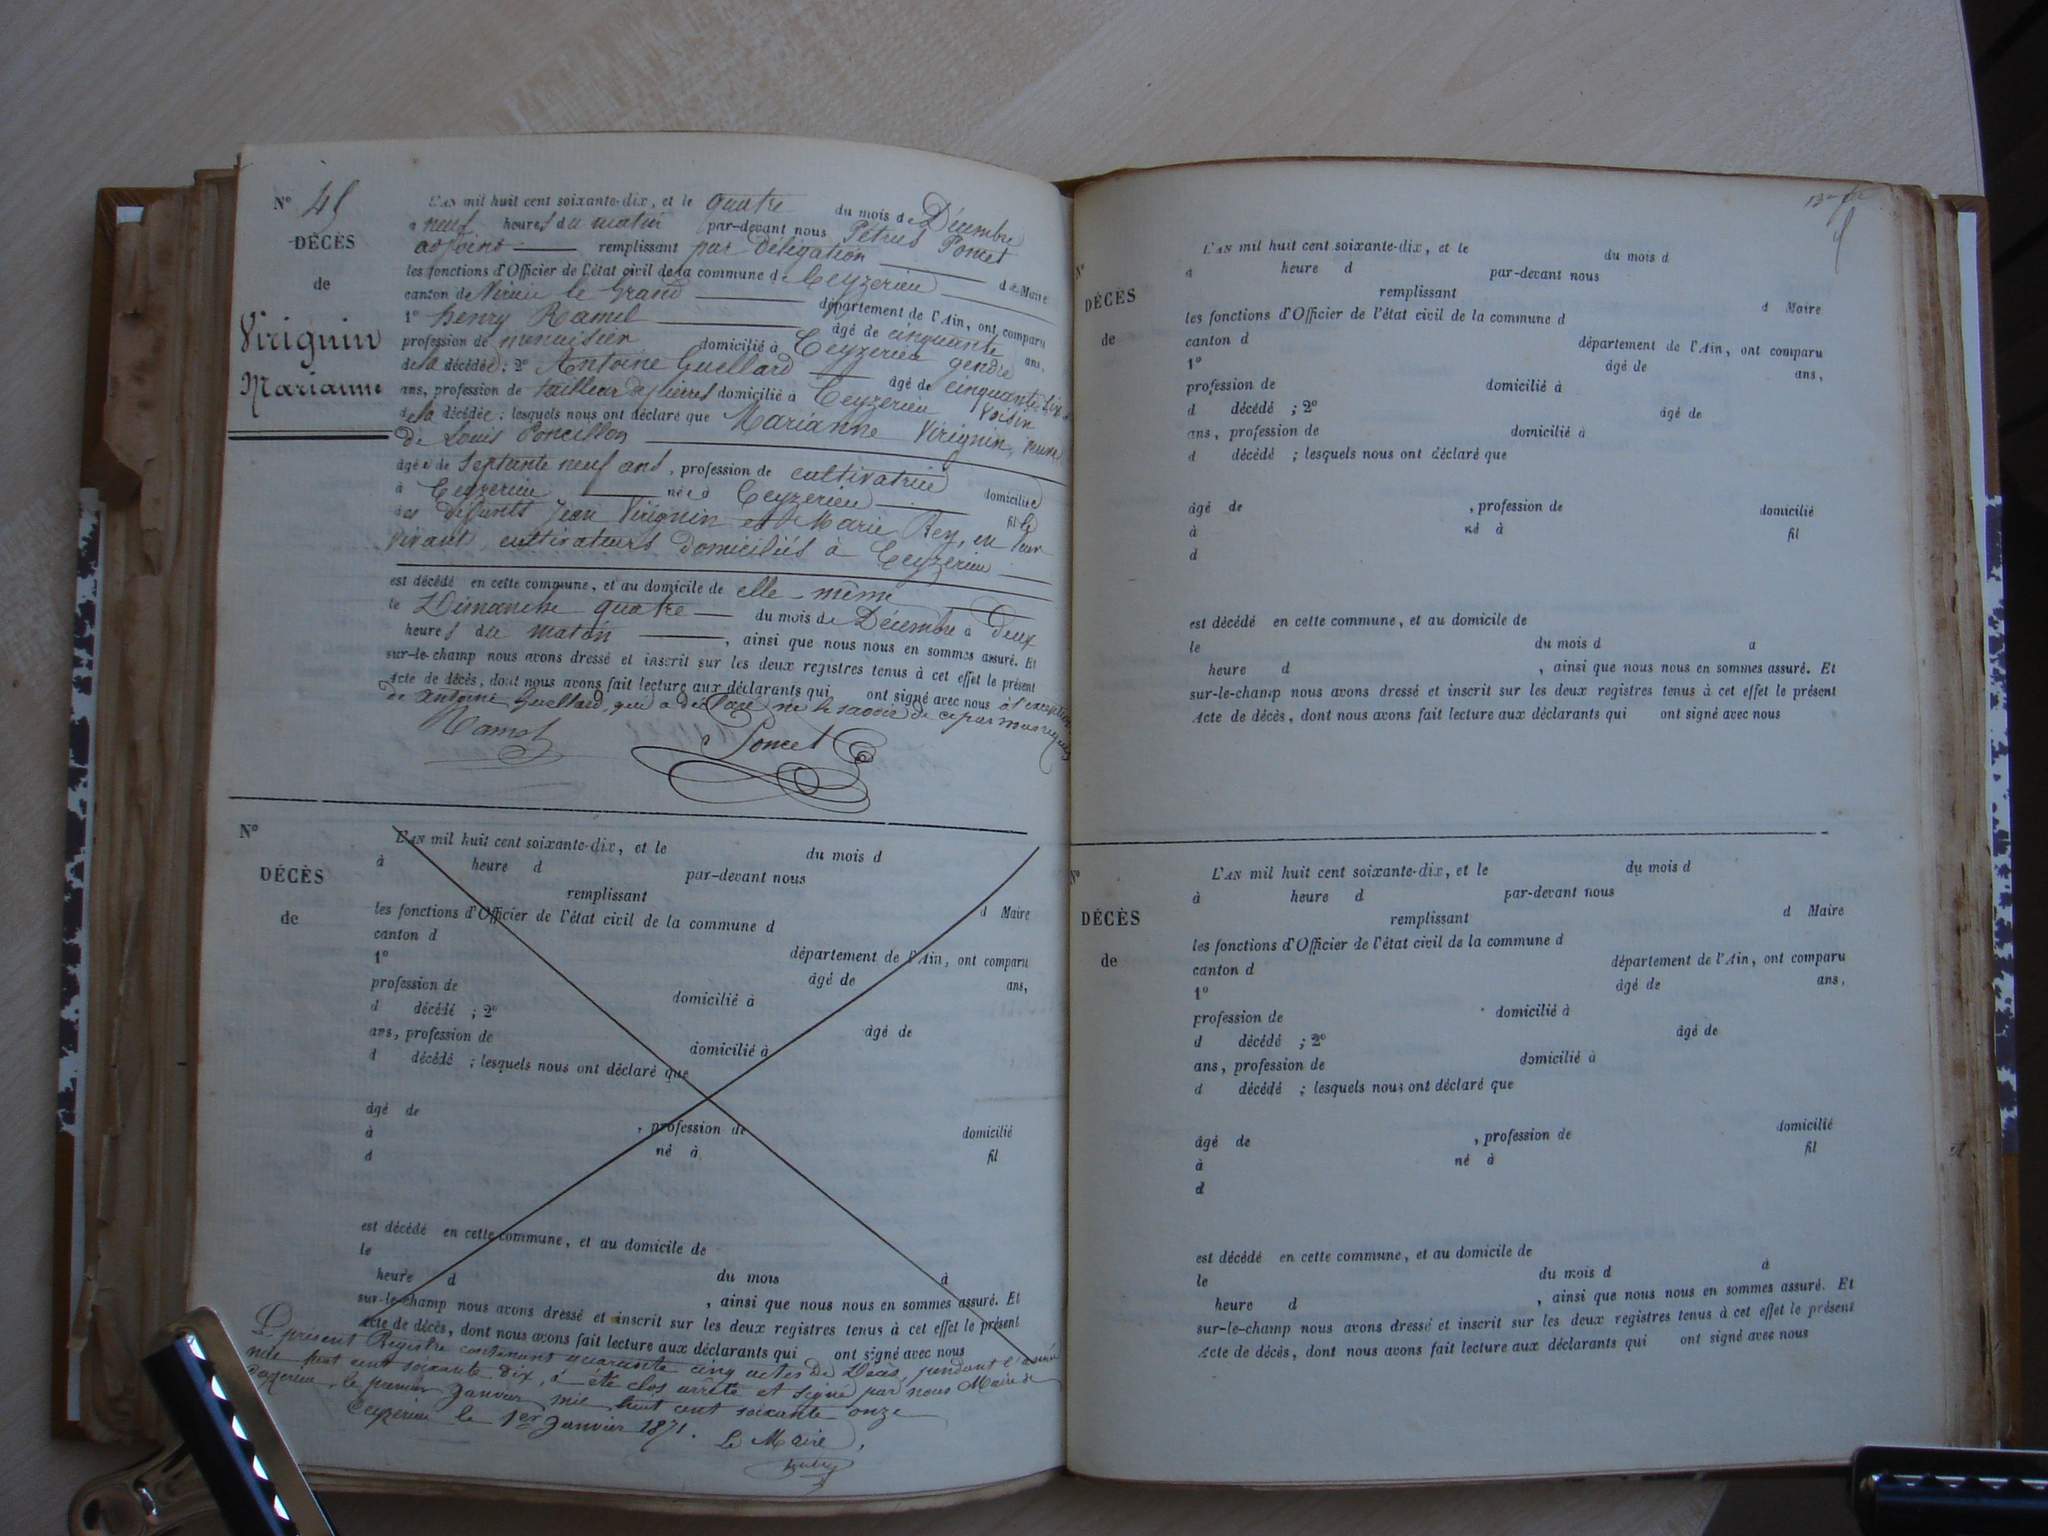 N° 45
DÉCÈS
de
Virignin
Marianne
L'AN mil huit cent soixante-dix, et le quatre du mois de Décembre
à neuf heures du matin par-devant nous Pétrus Poncet
adjoint remplissant par délégation
les fonctions d'Officier de l'état civil de la commune de Ceyzerieu d u Maire
canton de Virieu le Grand département de l'Ain, ont comparu
1° henry Ramel âgé de cinquante ans,
profession de domicilié à Ceyzerieu gendre
de la décédée; 2° Antoine Guellard âgé de cinquante six
ans, profession de tailleur de pierres domicilié à Ceyzerieu voisin
de la décédée; lesquels nous ont déclaré que Marianne Virignin, veuve
de Louis Poncillon
âgée de septante neuf ans, profession de cultivatrice domiciliée
à Ceyzerieu née à Ceyzerieu fille
des défunts Jean Virignin et de Marie Rey, en leur
vivant cultivateurs domiciliés à Ceyzerieu
est décédé en cette commune, et au domicile de elle-même
le Dimanche quatre du mois de Décembre à deux
heures du matin, ainsi que nous nous en sommes assuré. Et
sur-le-champ nous avons dressé et inscrit sur les deux registres tenus à cet effet le présent
Acte de décès, dont nous avons fait lecture aux déclarants qui ont signé avec nous à l'exception
de Antoine Guellard, qui a déclaré ne le savoir de ce par nous requis
Ramel Poncet
N°
DÉCÈS
de
L'AN mil huit cent soixante-dix, et le du mois d
à heure d par-devant nous
remplissant
les fonctions d'Officier de l'état civil de la commune d d Maire
canton d département de l'Ain, ont comparu
1° âgé de ans,
profession de domicilié à
d décédé ; 2° âgé de
ans, profession de domicilié à
d décédé ; lesquels nous ont déclaré que
âgé de , profession de domicilié
à né à fil
d
est décédé en cette commune, et au domicile de
le du mois à
heure d , ainsi que nous nous en sommes assuré. Et
sur-le-champ nous avons dressé et inscrit sur les deux registres tenus à cet effet le présent
acte de décès, dont nous avons fait lecture aux déclarants qui ont signé avec nous
Le présent Registre contenant quarante cinq actes de Décès, pendant l'année
mil huit cent soixante dix, a été clos arrêté et signé par nous Maire de
Ceyzerieu, le premier Janvier mil huit cent soixante onze
Ceyzerieu le 1er Janvier 1871.
Le Maire,
N°
DÉCÈS
de
L'AN mil huit cent soixante-dix, et le du mois d
à heure d par-devant nous
remplissant d Maire
les fonctions d'Officier de l'état civil de la commune d
canton d département de l'Ain, ont comparu
1° âgé de ans,
profession de domicilié à
d décédé ; 2° âgé de
ans, profession de domicilié à
d décédé ; lesquels nous ont déclaré que
âgé de , profession de domicilié
à né à fil
d
est décédé en cette commune, et au domicile de
le du mois d a
heure d , ainsi que nous nous en sommes assuré. Et
sur-le-champ nous avons dressé et inscrit sur les deux registres tenus à cet effet le présent
Acte de décès, dont nous avons fait lecture aux déclarants qui ont signé avec nous
N°
DÉCÈS
de
L'AN mil huit cent soixante-dix, et le du mois d
à heure d par-devant nous
remplissant d Maire
les fonctions d'Officier de l'état civil de la commune d
canton d département de l'Ain, ont comparu
1° âgé de ans,
profession de domicilié à
d décédé ; 2° âgé de
ans, profession de domicilié à
d décédé ; lesquels nous ont déclaré que
âgé de , profession de domicilié
à né à fil
d
est décédé en cette commune, et au domicile de
le du mois d à
heure d , ainsi que nous nous en sommes assuré. Et
sur-le-champ nous avons dressé et inscrit sur les deux registres tenus à cet effet le présent
Acte de décès, dont nous avons fait lecture aux déclarants qui ont signé avec nous